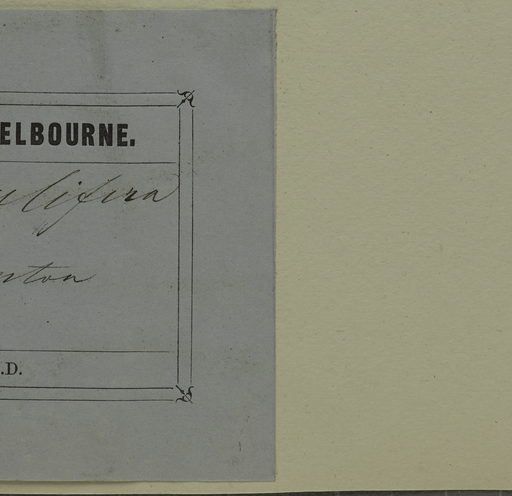 ELBOURNE.
ulifera
nston
.D.